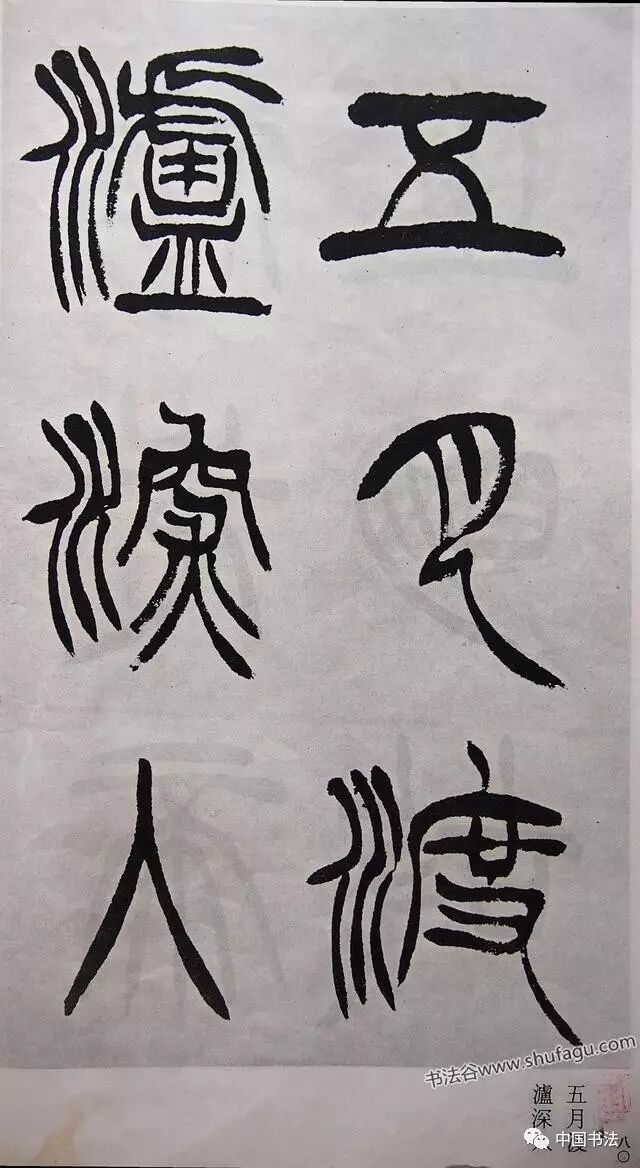 五月渡
瀘深入
书法谷www.shufagu.com
五月
瀘深
八〇
中国书法